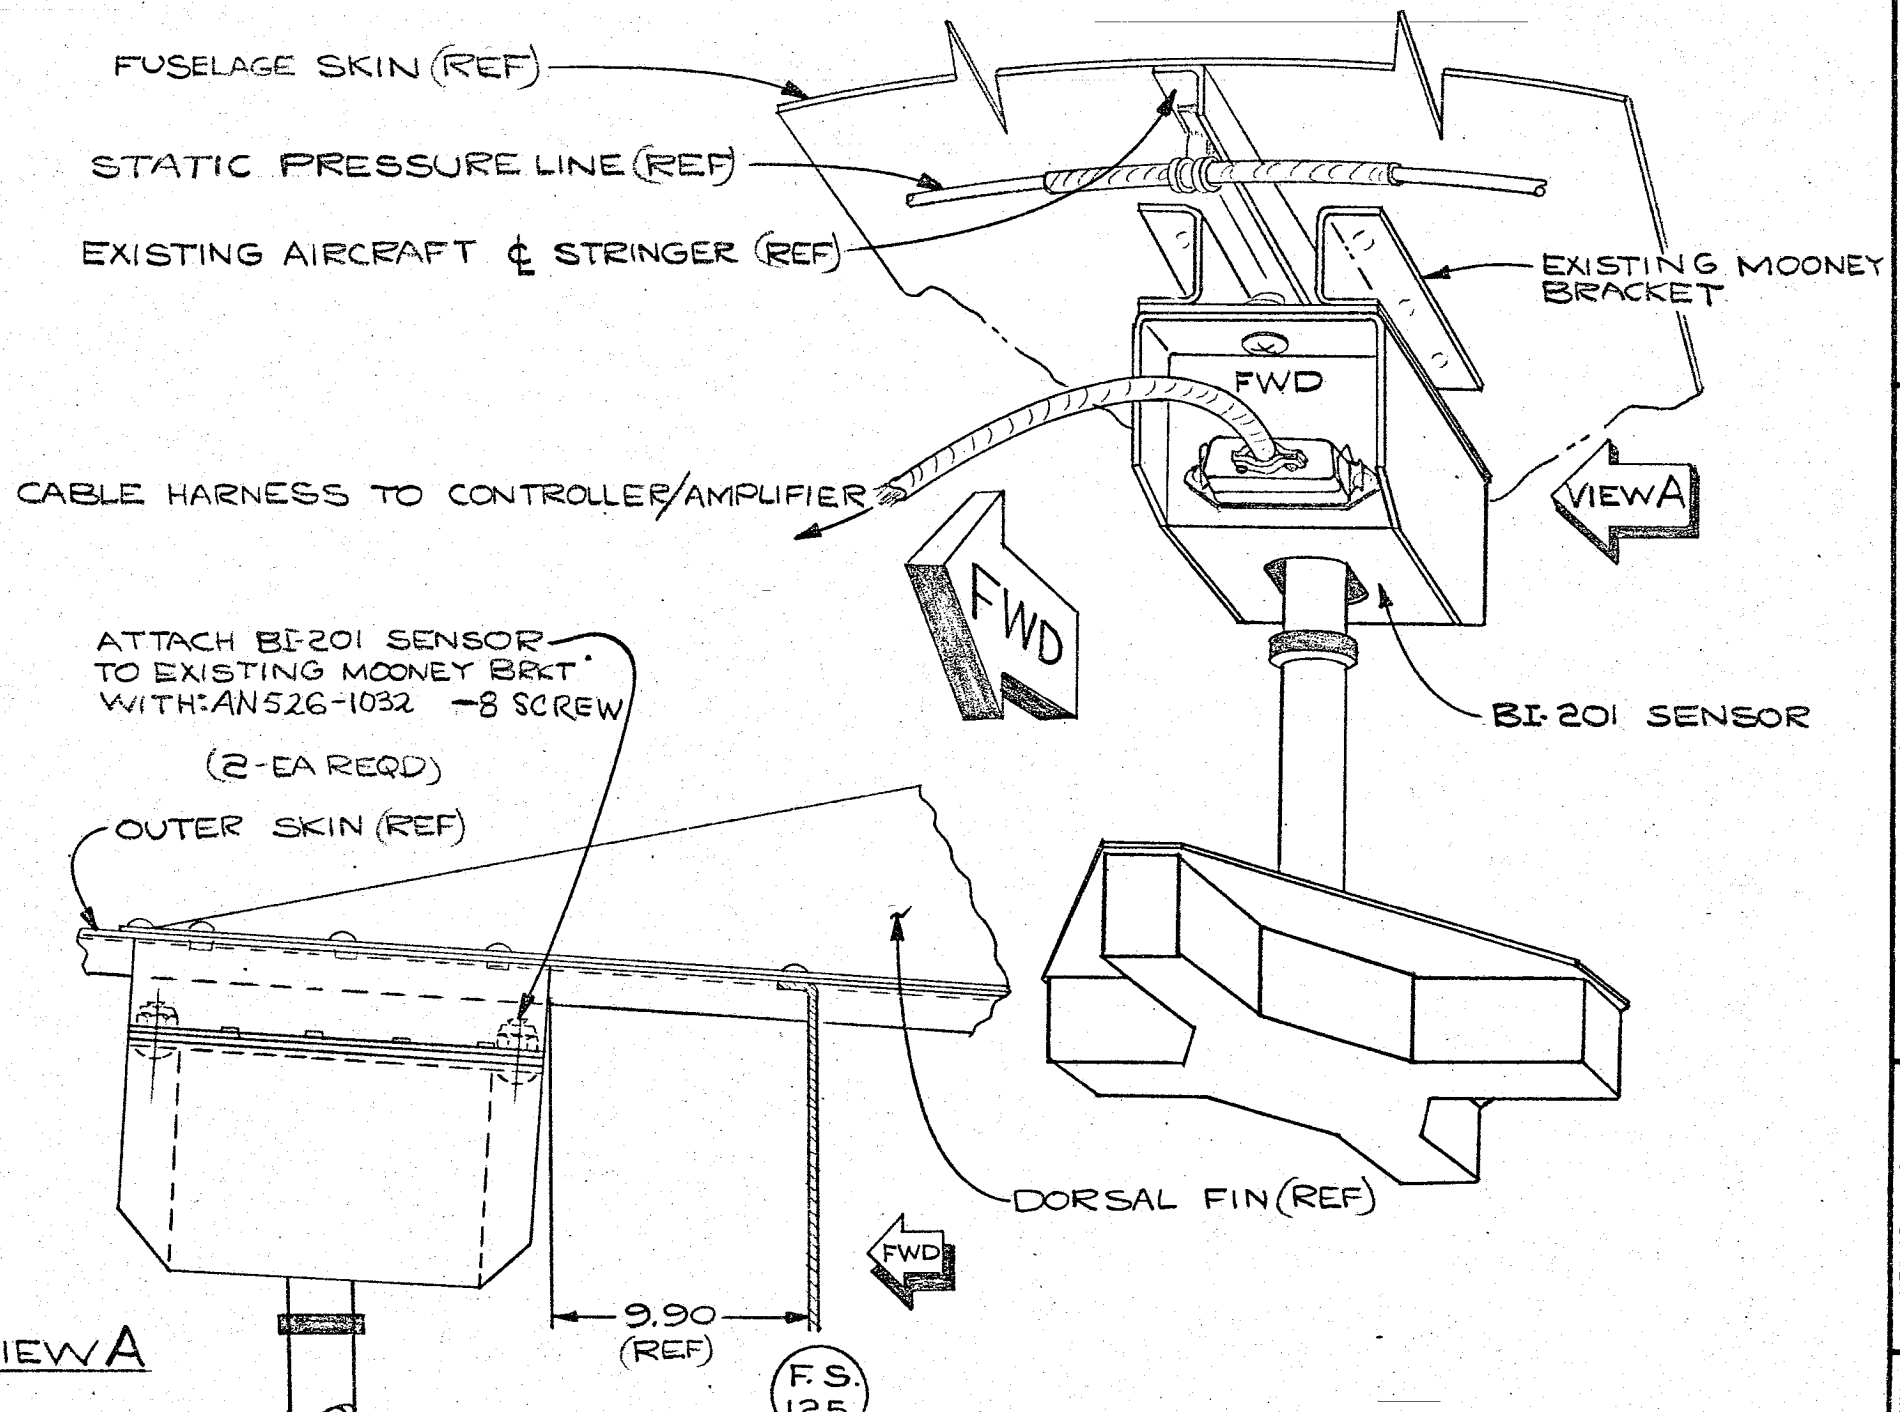 FUSELAGE SKIN (REF)
STATIC PRESSURE LINE (REF)
EXISTING AIRCRAFT ℄ STRINGER (REF)
EXISTING MOONEY
BRACKET
FWD
CABLE HARNESS TO CONTROLLER/AMPLIFIER
VIEW A
FWD
ATTACH BI-201 SENSOR
TO EXISTING MOONEY BRKT
WITH: AN526-1032 -8 SCREW
(2-EA REQD)
BI-201 SENSOR
OUTER SKIN (REF)
DORSAL FIN (REF)
FWD
9.90
(REF)
IEW A
F.S.
125